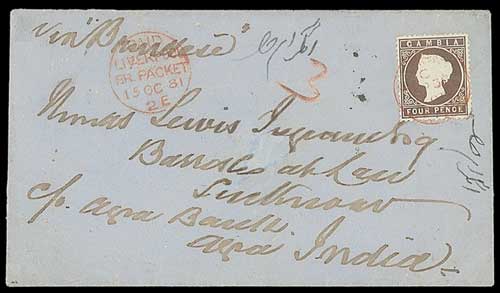 via "Brindisi"
LIVERPOOL
BR. PACKET
15 OC 81
2 E
GAMBIA
FOUR PENCE
Thomas Lewis Ingram Esq
Barrister at Law
Lucknow
c/o Agra Bank
Agra India